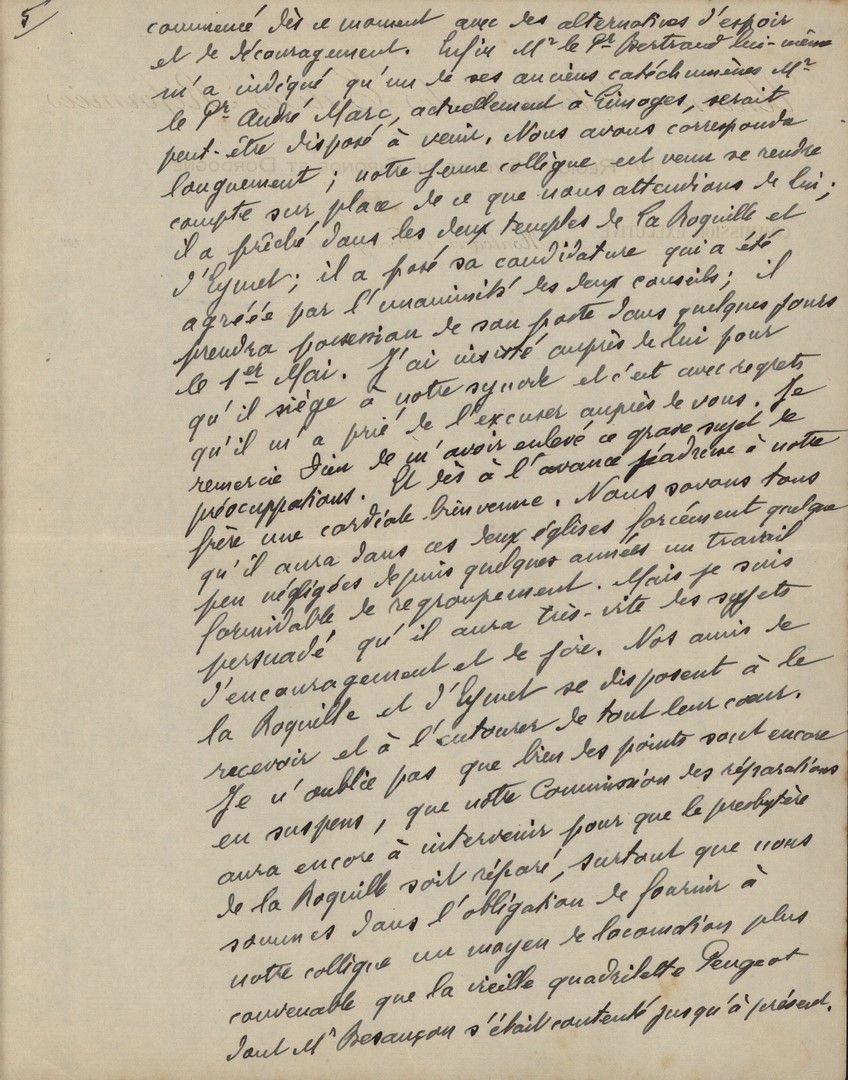 5/
commencé dès ce moment avec des alternatives d'espoir
et de découragement. Enfin Mr le Pr Bertrand lui-même
m'a indiqué qu'un de ses anciens catéchumènes Mr
le Pr André Marc, actuellement à Limoges, serait
peut-être disposé à venir. Nous avons correspondu
longuement ; notre jeune collègue est venu se rendre
compte sur place de ce que nous attendions de lui ;
il a prêché dans les deux temples de la Roquille et
d'Eymet ; il a posé sa candidature qui a été
agréée par l'unanimité des deux conseils ; il
prendra possession de son poste dans quelques jours
le 1er Mai. J'ai insisté auprès de lui pour
qu'il siège à notre synode et c'est avec regrets
qu'il m'a prié de l'excuser auprès de vous. Je
remercie Dieu de m'avoir enlevé ce grave sujet de
préoccupations. Et dès à l'avance j'adresse à notre
frère une cordiale bienvenue. Nous savons tous
qu'il aura dans ces deux églises forcément quelque
peu négligées depuis quelques années un travail
formidable de regroupement. Mais je suis
persuadé qu'il aura très-vite des sujets
d'encouragement et de joie. Nos amis de
la Roquille et d'Eymet se disposent à le
recevoir et à l'entourer de tout leur cœur.
Je n'oublie pas que bien des points sont encore
en suspens, que notre Commission des réparations
aura encore à intervenir pour que le presbytère
de la Roquille soit réparé, surtout que nous
sommes dans l'obligation de fournir à
notre collègue un moyen de locomotion plus
convenable que la vieille quadrilette Peugeot
dont Mr Besançon s'était contenté jusqu'à présent.